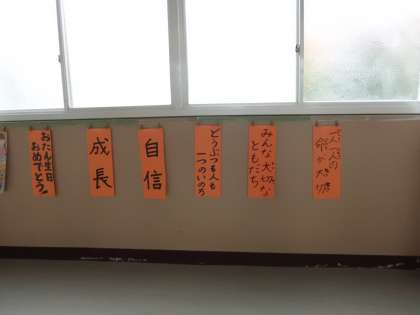 おたん生日
おめでとう!
成長
自信
どうぶつも人も
一つのいのち
みんな大切な
ともだち
命が大切